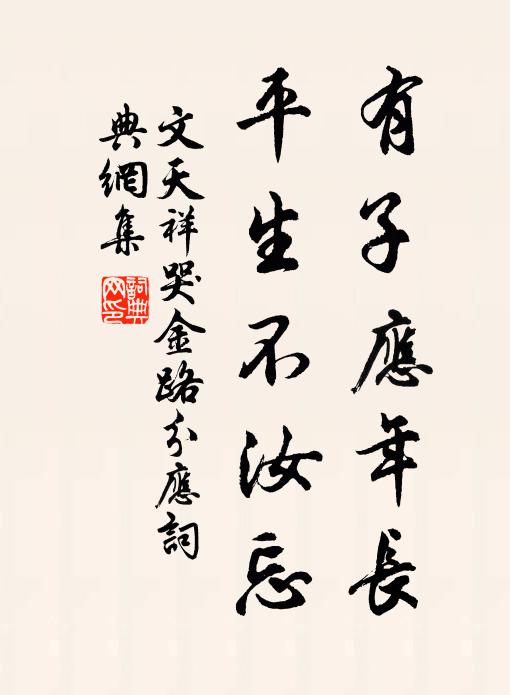 有子應年長
平生不汝忘
文天祥哭金路分應詞
典網集
詞典網印